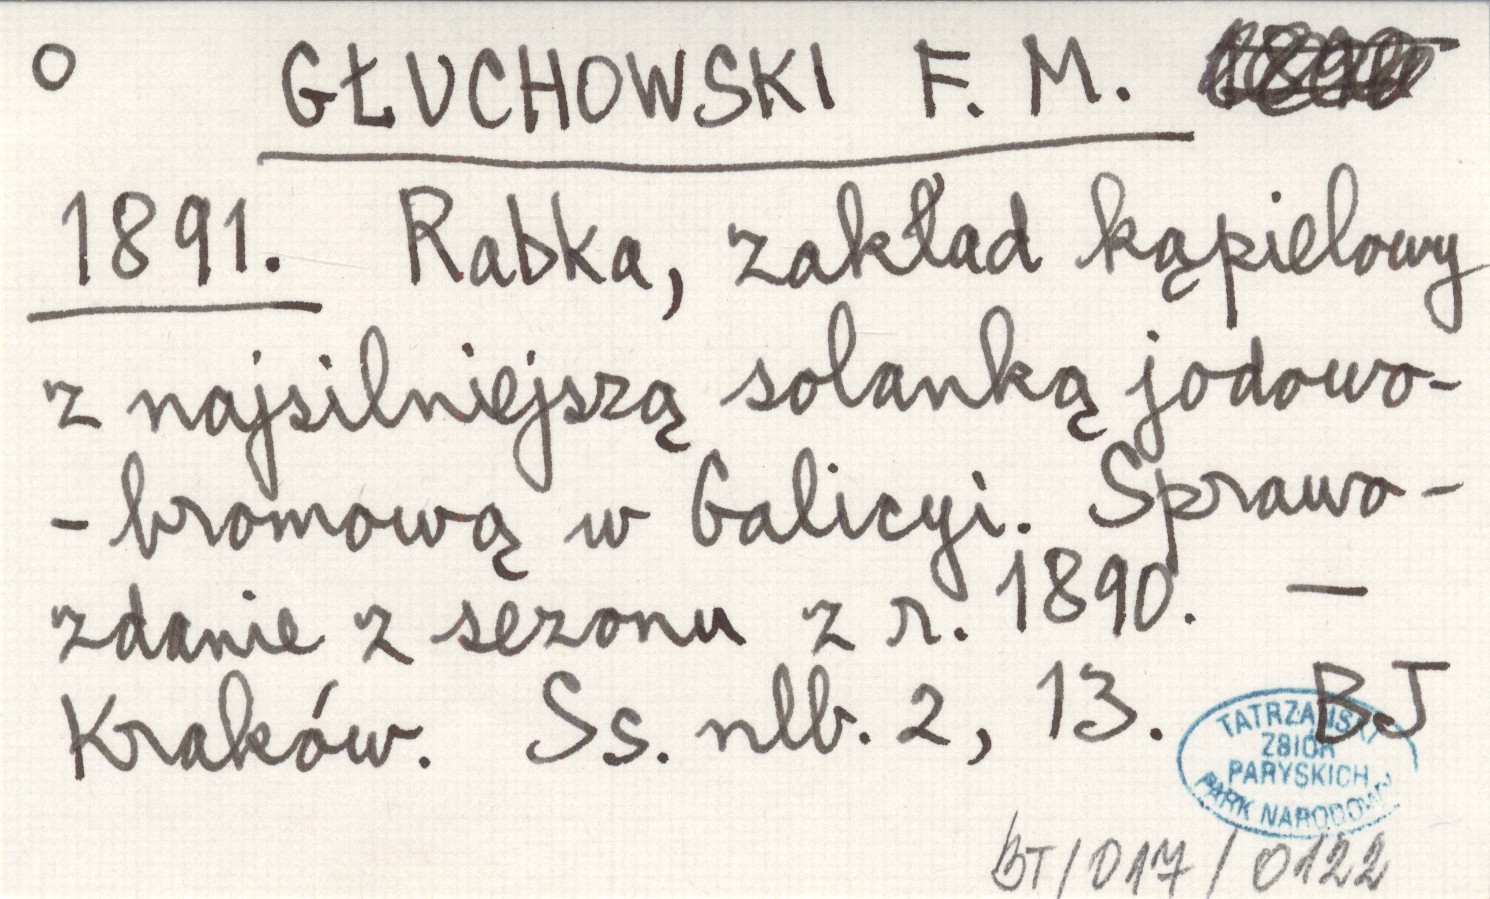 O GŁUCHOWSKI F. M.
1891. Rabka, zakład kąpielowy
z najsilniejszą solanką jodowo-
-bromową w Galicyi. Sprawo-
zdanie z sezonu z r. 1890. —
Kraków. Ss. nlb. 2, 13. BJ
TATRZAŃSKI
ZBIÓR
PARYSKICH
PARK NARODOWY
BT/017/0122